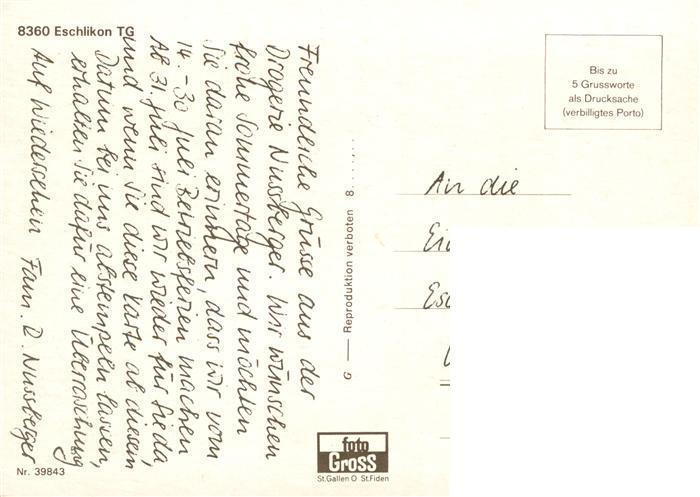 8360 Eschlikon TG
Freundliche Grüsse aus der
Drogerie Nussberger. Wir wünschen
frohe Sommertage und möchten
Sie daran erinnern, dass wir vom
14. - 30 Juli Betriebsferien machen
Ab 31. Juli sind wir wieder für Sie da,
und wenn Sie diese Karte ab diesem
Datum bei uns abstempeln lassen,
erhalten Sie dafür eine Überraschung
Auf Wiedersehen Fam. R. Nussberger
Nr. 39843
G — Reproduktion verboten 8......
Bis zu
5 Grussworte
als Drucksache
(verbilligtes Porto)
An die
foto
Gross
St.Gallen O St.Fiden